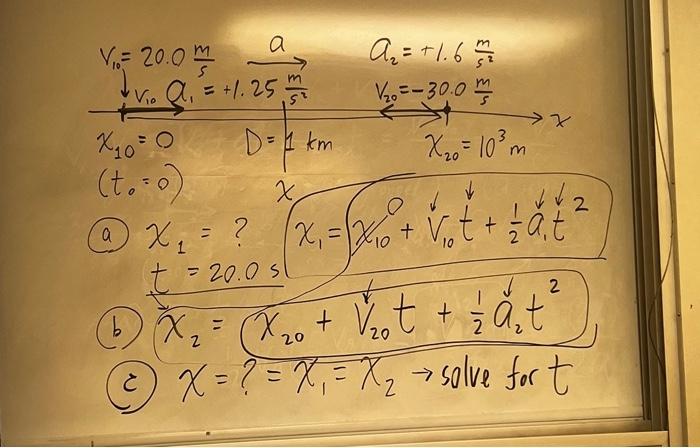 V₁₀ = 20.0 m/s a a₂ = +1.6 m/s²
V₁₀ a₁ = +1.25 m/s² V₂₀ = -30.0 m/s
x
x₁₀ = 0 D = 1 km x₂₀ = 10³ m
(t₀ = 0) x
(a) x₁ = ? x₁ = x₁₀ 0 + V₁₀t + ½a₁t²
t = 20.0 s
(b) x₂ = x₂₀ + V₂₀t + ½a₂t²
(c) x = ? = x₁ = x₂ → solve for t